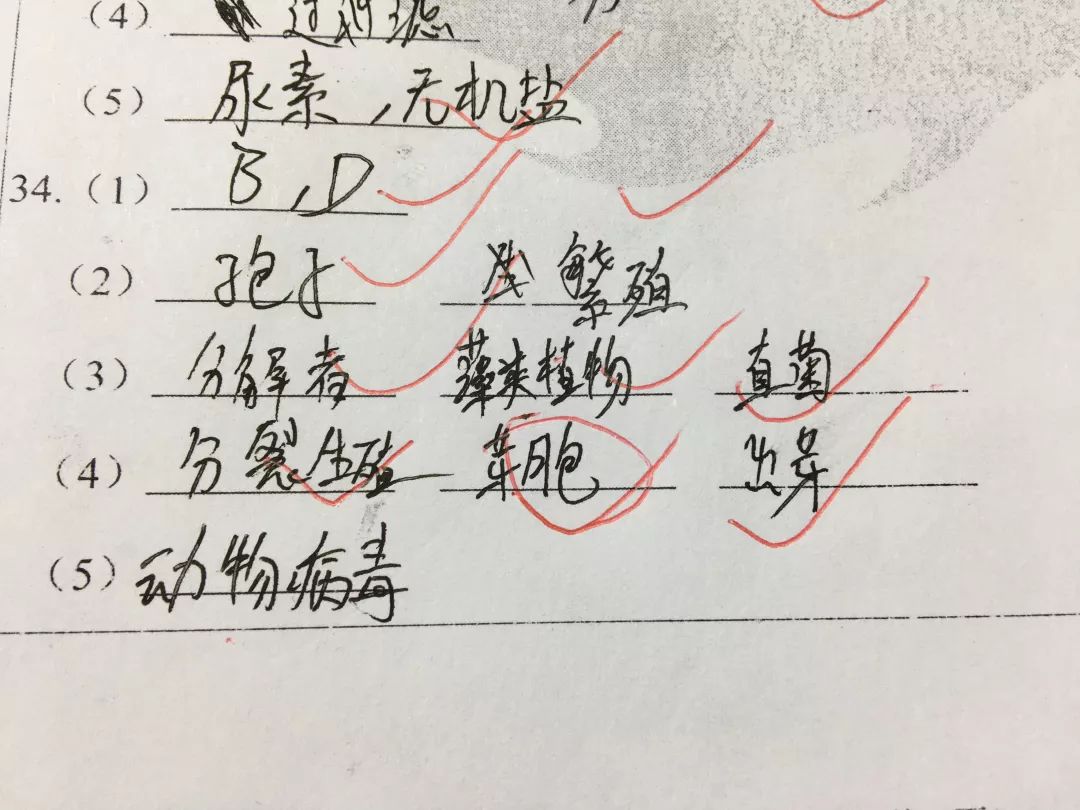 (4) 过滤
(5) 尿素,无机盐
34.(1) B,D
(2) 孢子 繁殖
(3) 分解者 藻类植物 真菌
(4) 分裂生殖 芽胞 出芽
(5) 动物病毒